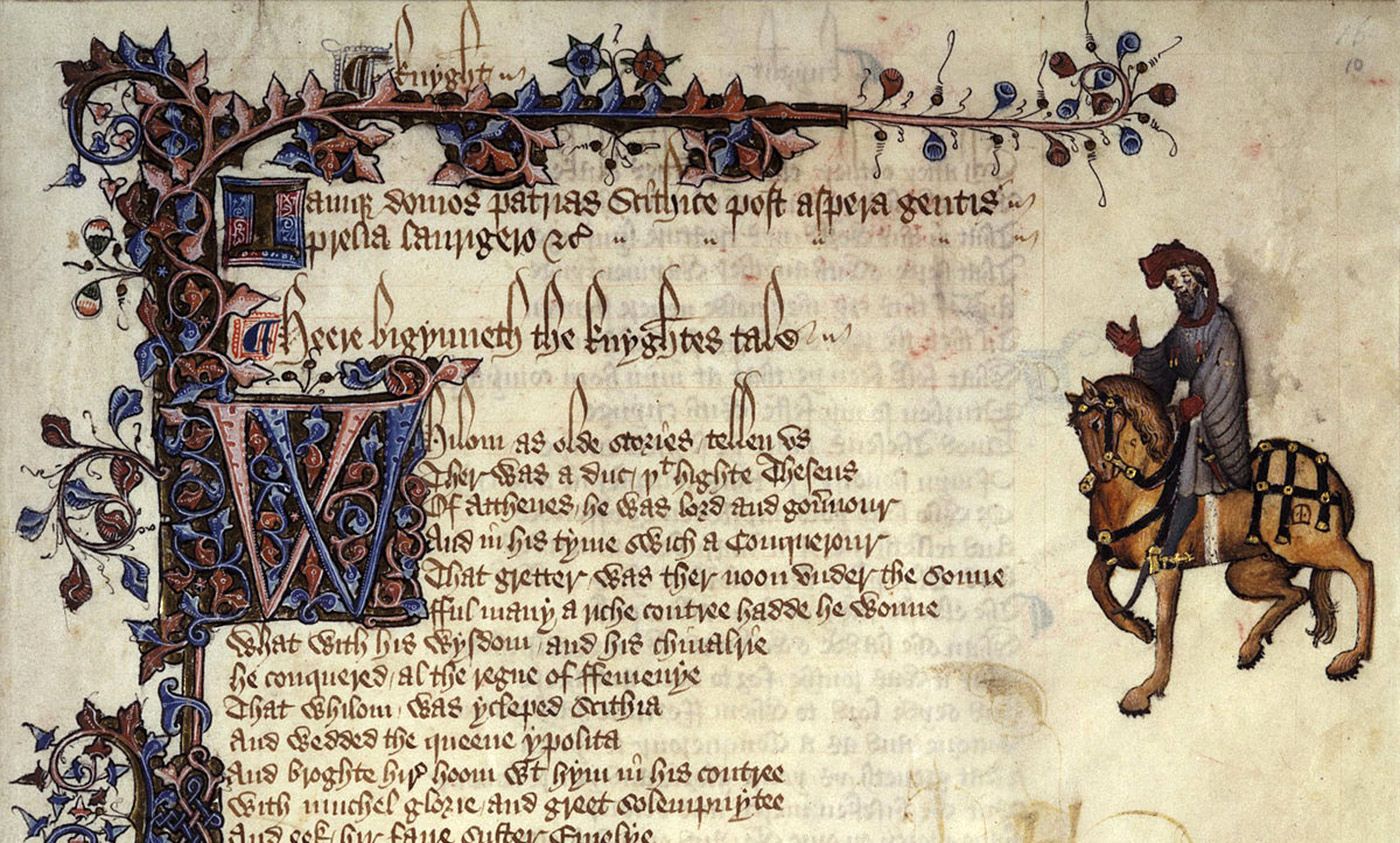 ¶ Knyght
Iamque domos patrias Scithice post aspera gentis
prelia laurigero &c̃
¶ Heere bigynneth the knyghtes tale
Whilom as olde stories / tellen vs
Ther was a duc / þᵗ highte Theseus
Of Atthenes / he was lord and gouernour
And in his tyme swich a Conquerour
That gretter / was ther noon vnder the sonne
fful many a riche contree hadde he wonne
What with his wysdom / and his chiualrie
he conquered / al the regne of ffemenye
That whilom / was ycleped Scithia
And wedded the queene ypolita
And broghte hir hoom wᵗ hym in his contree
With muchel glorie / and greet solempnytee
And eek / hir faire suster Emelye
10